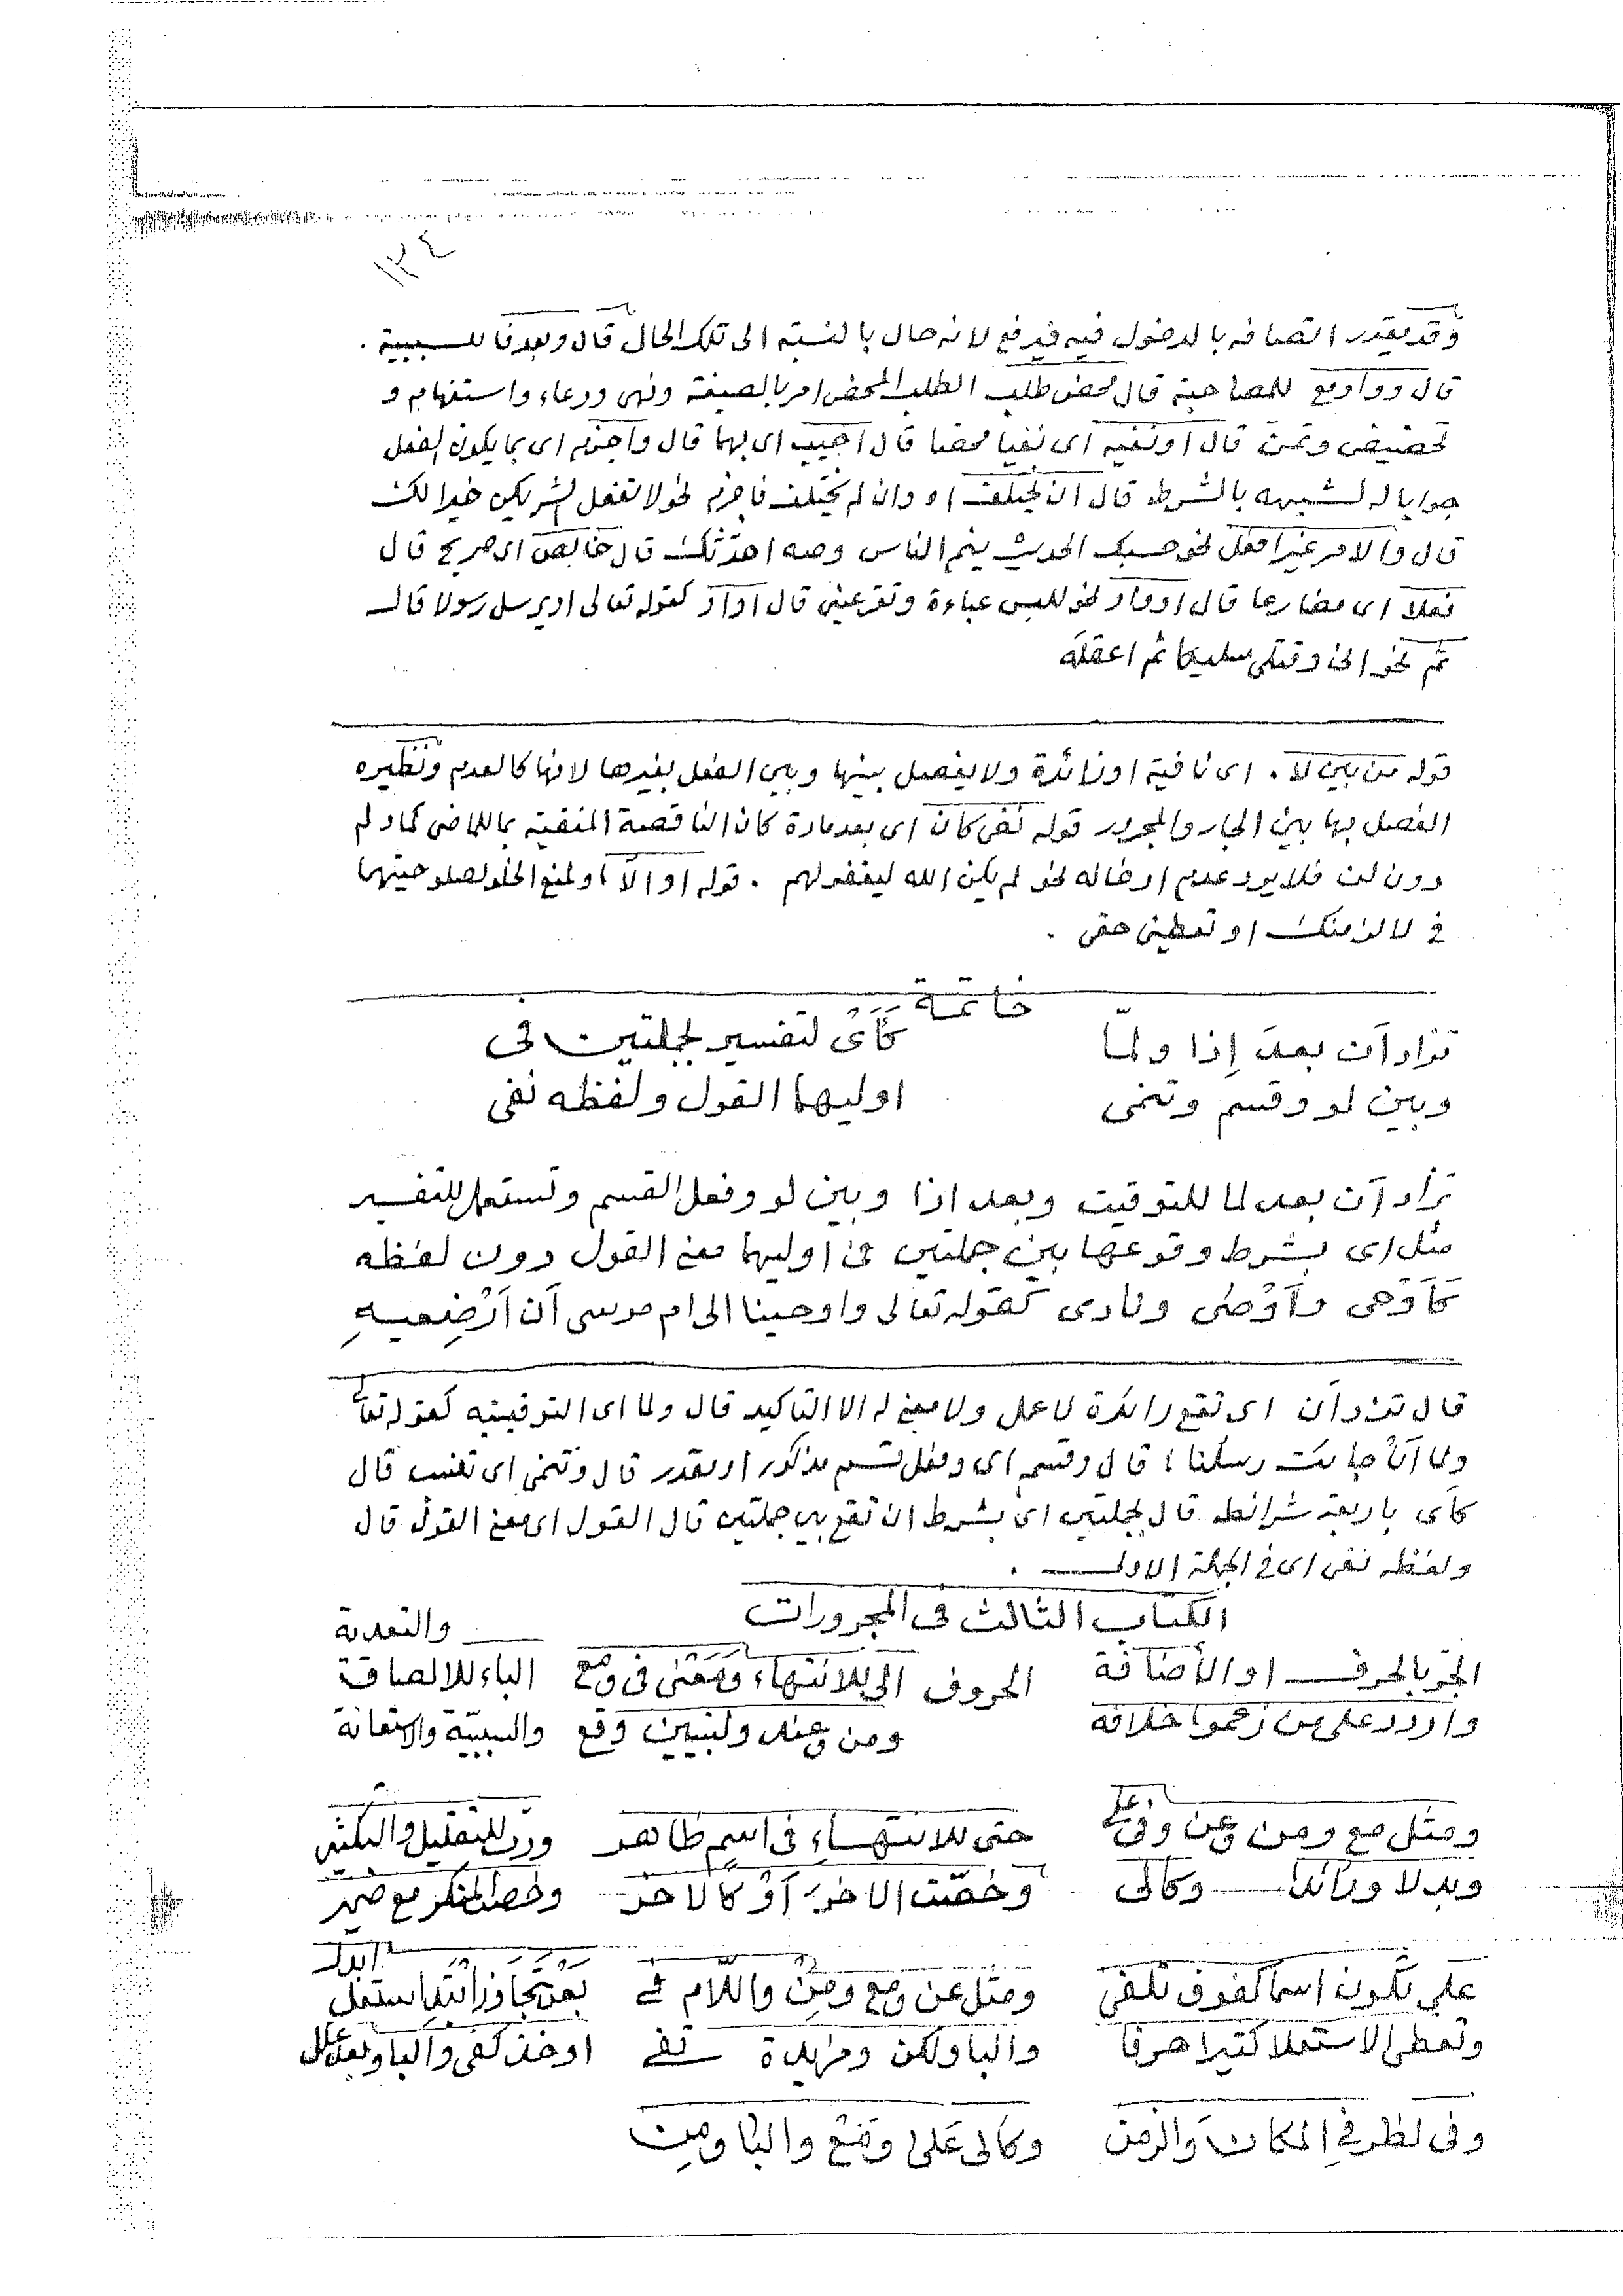 ١٣٤
وقد يقدر اتصافه بالدخول فيه فيرفع لانه حال بالنسبة الى تلك الحال قال وبعد فا للسببية .
قال وواو مع للمصاحبة قال محض طلب الطلب المحض امر بالصيغة ونهى ودعاء واستفهام و
تحضيض وتمن قال او نفيه اى نفيا محضا قال اجيب اى بهما قال واجزم اى بما يكون الفعل
جوابا له لشبهه بالشرط قال ان لم يختلف او وان لم يختلف فاجزم نحو لا تفعل الشر يكن خيرا لك
قال والامر غير افعل نحو حسبك الحديث ينم الناس وصه احدّثك قال خالص اى صريح قال
فعلا اى مضارعا قال او واو نحو للبس عباءة وتقر عينى قال او او كقوله تعالى او يرسل رسولا قال
ثم نحو انى وقتلى سليكا ثم اعقله
قوله من بين لا . اى نافية او زائدة ولا يفصل بينها وبين الفعل بغيرها لانها كالعدم ونظيره
الفصل بها بين الجار والمجرور قوله نفى كان اى بعد مادة كان الناقصة المنفية بما للماضى كما ولم
دون لن فلا يرد عدم ادخاله نحو لم يكن الله ليغفر لهم . قوله او الا او لمنع الخلو لصلوحيتهما
فى لالزمنك او تعطينى حقى .
خاتمة
تزاد أن بعد إذا ولمّا كأى لتفسير لجملتين فى
وبين لو وقسم وتنمى اوليهما القول ولفظه نفى
تزاد أن بعد لما للتوقيت وبعد اذا وبين لو وفعل القسم وتستعمل للتفسير
مثل اى بشرط وقوعها بين جملتين فى اوليهما معنى القول دون لفظه
كأَوْحى وأَوْصى ونادى كقوله تعالى واوحينا الى ام موسى أن أَرْضِعيهِ
قال تزاد أن اى تقع زائدة لا عمل ولا معنى له الا التاكيد قال ولما اى التوقيتيه كقوله تعالى
ولما أنْ جائت رسلنا ؛ قال وقسم اى وفعل قسم مذكور او مقدر قال وتنمى اى تنسب قال
كأى باربعة شرائط قال لجملتين اى بشرط ان تقع بين جملتين قال القول اى معنى القول قال
ولفظه نفى اى فى الجملة الاولى .
الكتاب الثالث فى المجرورات
والتعدية
الجر بالحرف او الأضافة الحروف الى للانتهاء ومعنى فى ومع الباء للالصاقة
واردد على من زعموا خلافه ومن وعند ولتبيين وقع والسببيّة والاستعانة
ومثل مع ومن وعن وفى على حتى للانتهاءِ فى اسمٍ ظاهر وربّ للتقليل والتكثير
وبدلا وزائدا وكالى وخصّت الاخر أوْ كالاخر وخصت المنكر مع ضمير
على تكون اسما كفوق تلفى ومثل عن ومع ومِنْ واللّام فى بعن تجاوز ابتدا استعل ابدل
وتعطى الاستعلا كثيرا حرفا والبا ولكن ومزيدة تفى او خذ كفى والبا وبعد علل
وفى لظرفى المكان والزمن وكالى على ومع والبا ومِن